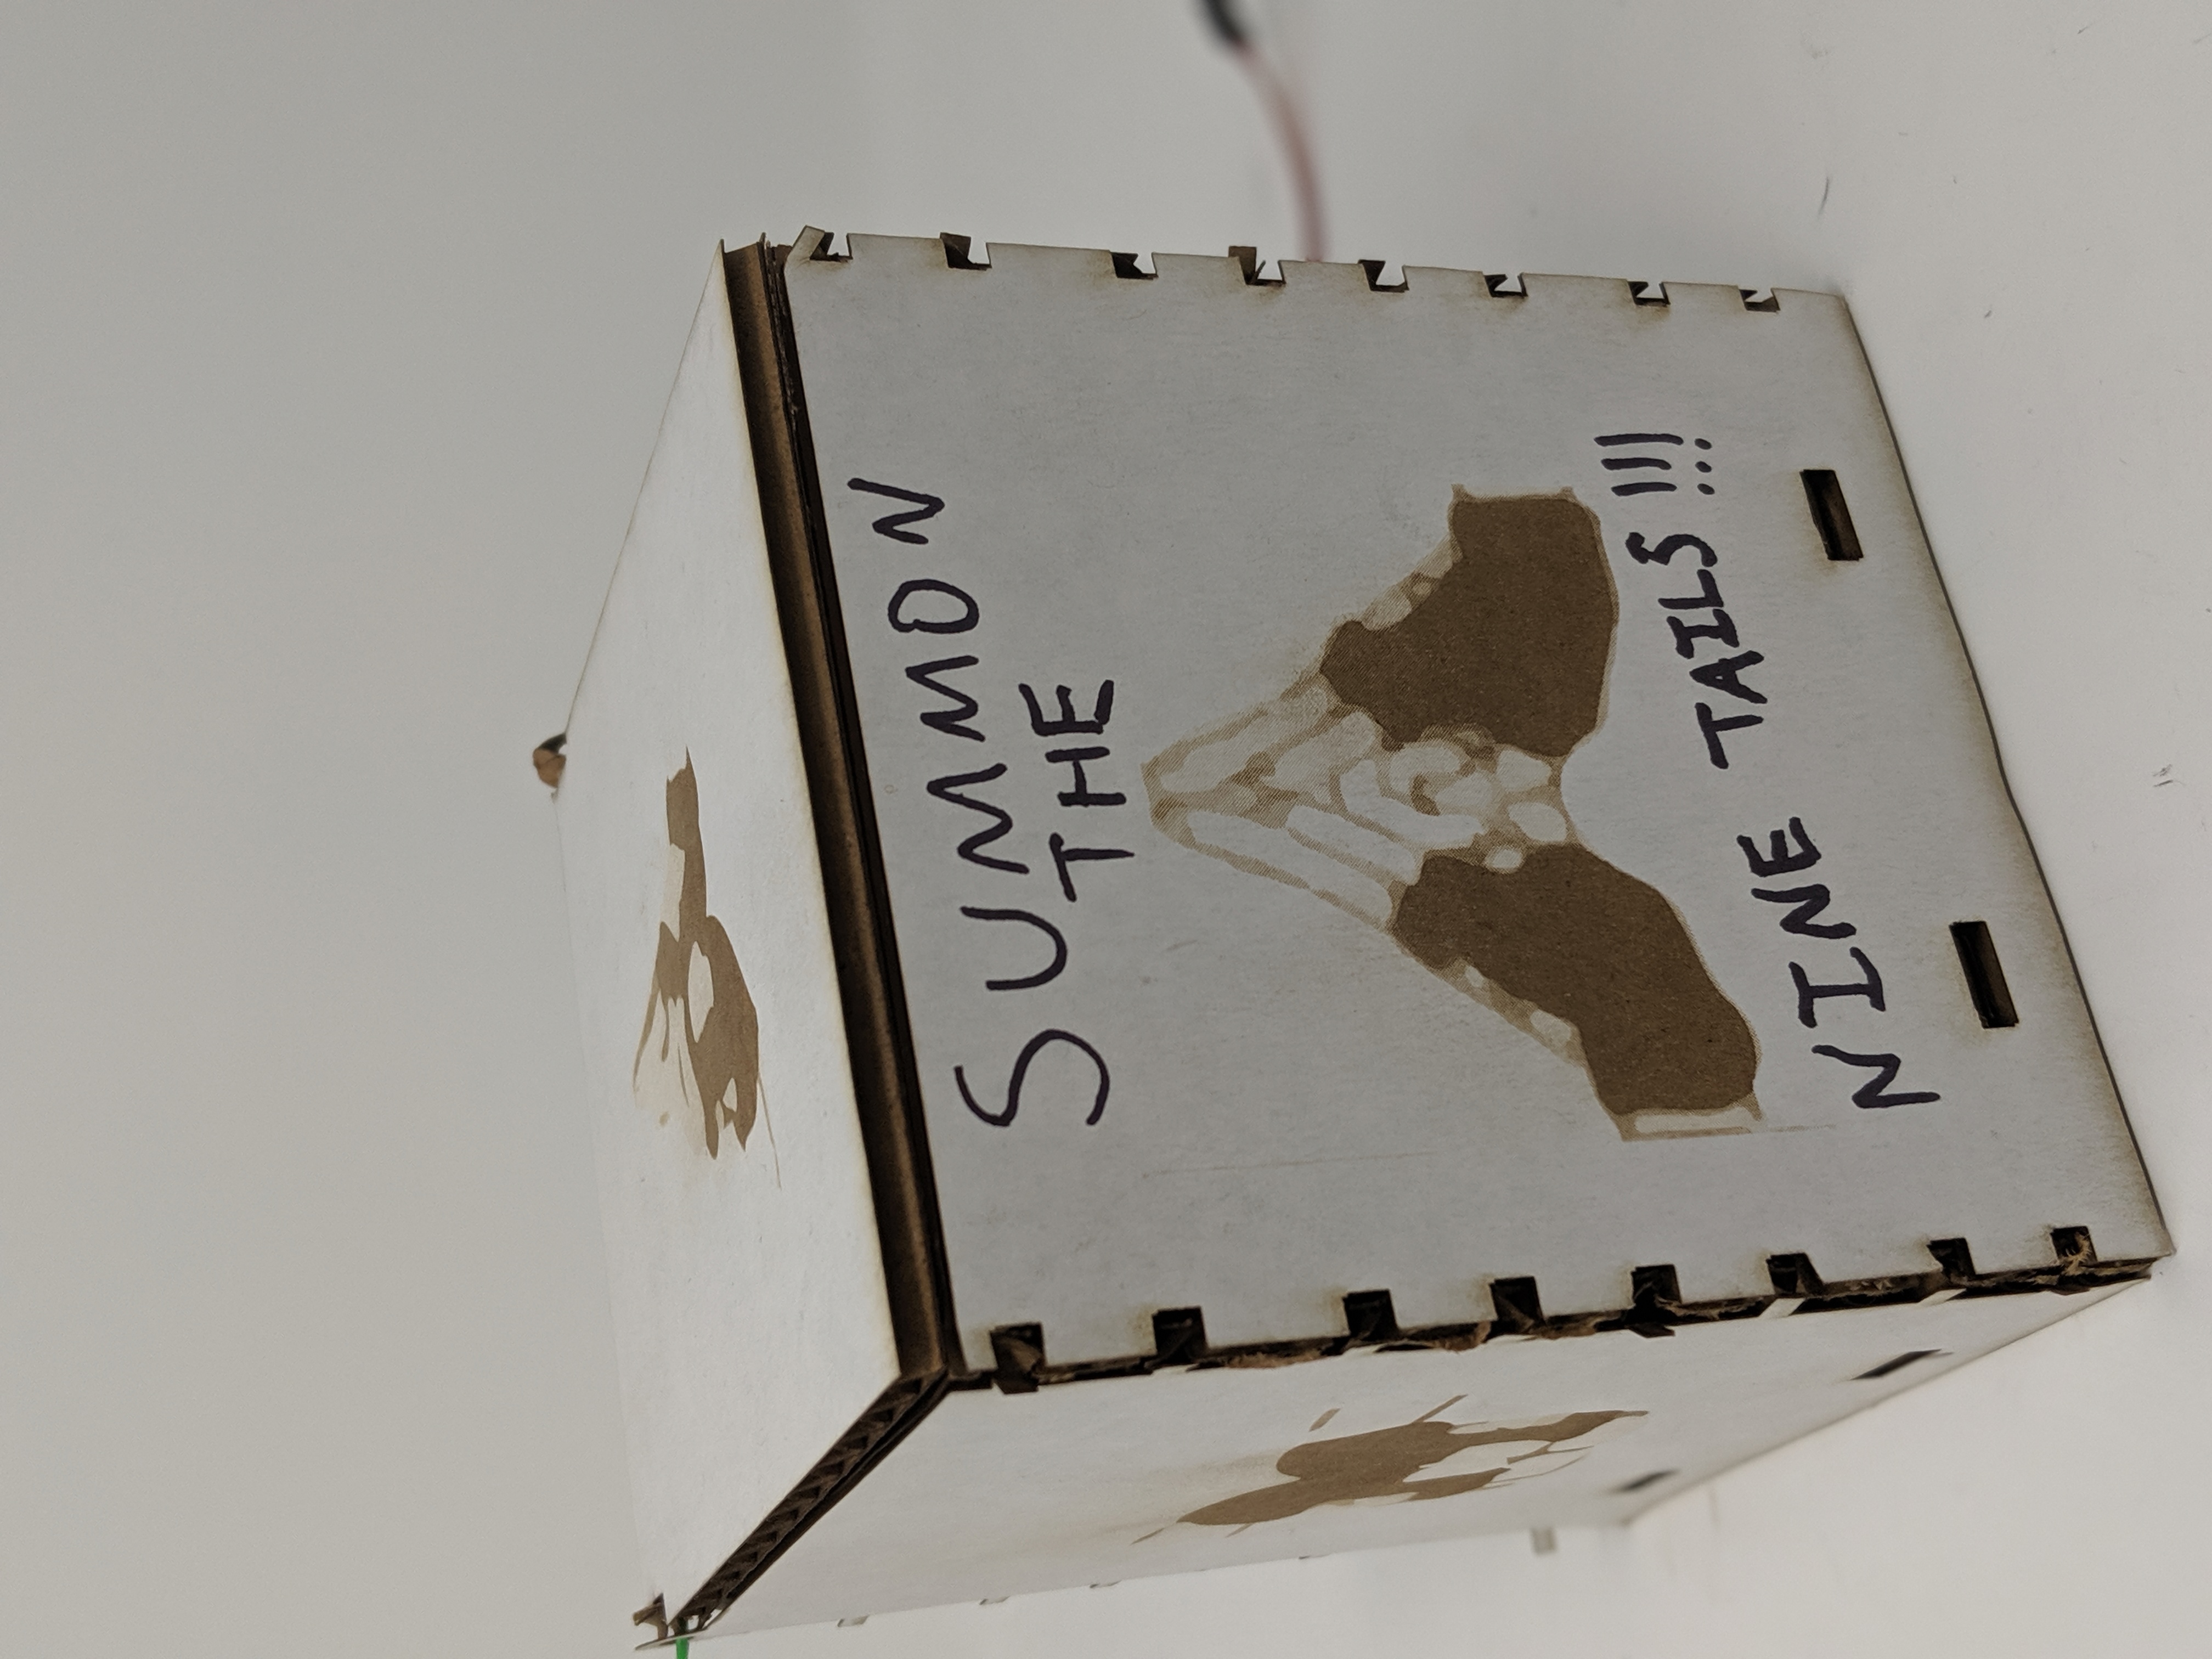 SUMMON
THE
NINE TAILS!!!